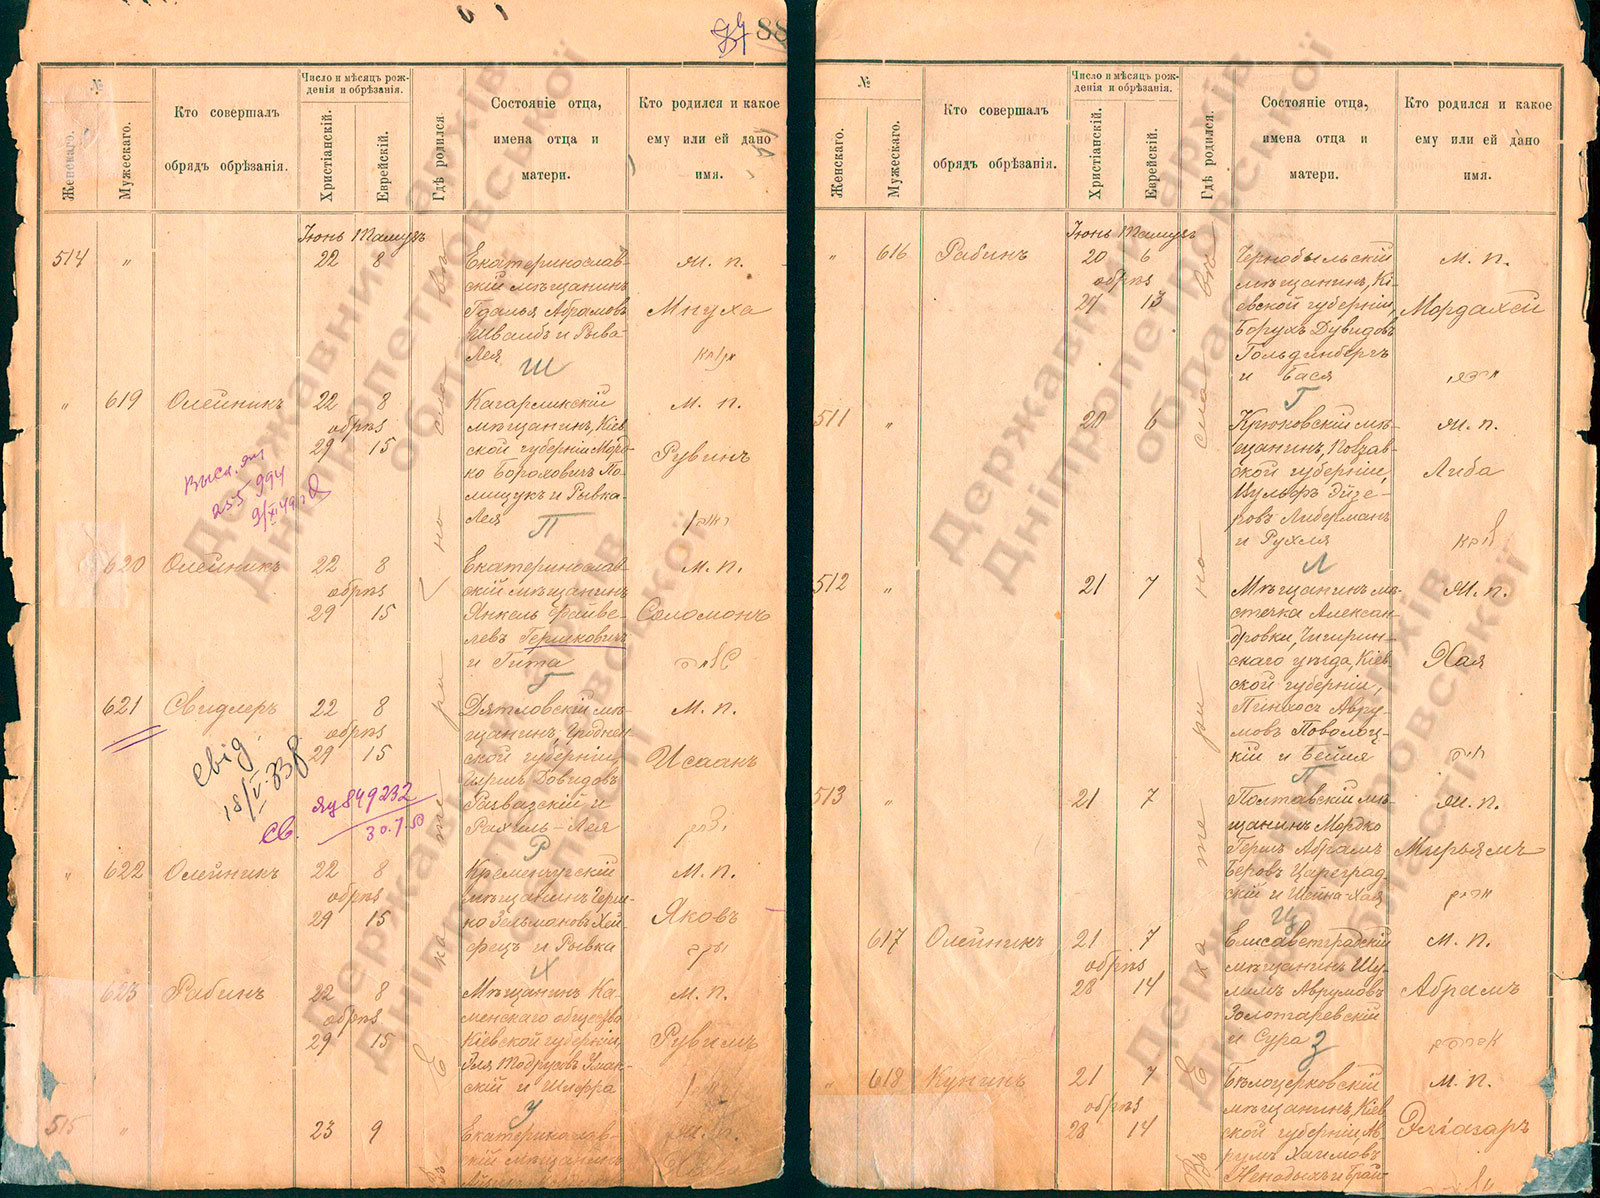 88
№
Женскаго.
Мужескаго.
Кто совершалъ
обрядъ обрѣзанія.
Число и мѣсяцъ рож-
денія и обрѣзанія.
Христіанскій.
Еврейскій.
Гдѣ родился
Состояніе отца,
имена отца и
матери.
Кто родился и какое
ему или ей дано
имя.
Іюнь Тамузъ
514 " 22 8
Екатеринослав-
скій мѣщанинъ
Гдалья Абрамовъ
Швамбъ и Рыва
Лея
Ж. п.
Мнуха
Ш
" 619 Олейникъ 22 8
обрѣз
29 15
Кагарликскій
мѣщанинъ, Кіев
ской губерніи Морд-
ко Бороховичъ По-
лищукъ и Рывка
Лея
М. п.
Рувинъ
П
255 994
620 Олейникъ 22 8
обрѣз
29 15
Екатеринослав-
скій мѣщанинъ
Янкель Файве-
левъ Гершковичъ
и Гита
М. п.
Соломонъ
Г
621 Свидлеръ 22 8
обрѣз
29 15
Дятловскій мѣ-
щанинъ, Гроднен-
ской губерніи,
Гиршъ Довидовъ
Развазскій и
Рахиль-Лея
М. п.
Исаакъ
Р
свід.
18/V-33р
св.
яу849232
30.7.50
" 622 Олейникъ 22 8
обрѣз
29 15
Кременчугскій
мѣщанинъ Герш-
ко Зельмановъ Хей
фецъ и Рывка
М. п.
Яковъ
Х
623 Рабинъ 22 8
обрѣз
29 15
Мѣщанинъ Ка-
менскаго общества
Кіевской губерніи,
Эля Тодрусовъ Уман-
скій и Шифра
М. п.
Рувимъ
У
515 " 23 9
Екатеринослав-
скій мѣщанинъ
Ж. п.
Въ Екатеринославѣ
№
Женскаго.
Мужескаго.
Кто совершалъ
обрядъ обрѣзанія.
Число и мѣсяцъ рож-
денія и обрѣзанія.
Христіанскій.
Еврейскій.
Гдѣ родился.
Состояніе отца,
имена отца и
матери.
Кто родился и какое
ему или ей дано
имя.
Іюнь Тамузъ
" 616 Рабинъ 20 6
обрѣз
27 13
Чернобыльскій
мѣщанинъ, Кі-
евской губерніи,
Борухъ Дувидовъ
Гольдинбергъ
и Бася
М. п.
Мордахей
Г
511 " 20 6
Крюковскій мѣ-
щанинъ, Полтав-
ской губерніи,
Вульфъ Эйзе-
ровъ Либерманъ
и Рухля
Ж. п.
Либа
Л
512 " 21 7
Мѣщанинъ мѣ-
стечка Алексан-
дровки, Чигирин-
скаго уѣзда, Кіев
ской губерніи,
Пинхосъ Авру-
мовъ Поволоц-
кій и Бейля
Ж. п.
Хая
П
513 " 21 7
Полтавскій мѣ-
щанинъ Мордко
Гершъ Абрамъ
Беровъ Цареград-
скій и Шейна-Хая
Ж. п.
Мирьямъ
Ц
617 Олейникъ 21 7
обрѣз
28 14
Елисаветградскій
мѣщанинъ Шу-
лимъ Аврумовъ
Золотаревскій
и Сура
М. п.
Абрамъ
З
" 618 Кунинъ 21 7
обрѣз
28 14
Бѣлоцерковскій
мѣщанинъ, Кіев
ской губерніи Ав-
румъ Хаимовъ
М. п.
Эліазаръ
Въ Екатеринославѣ
Державний архів
Дніпропетровської
області